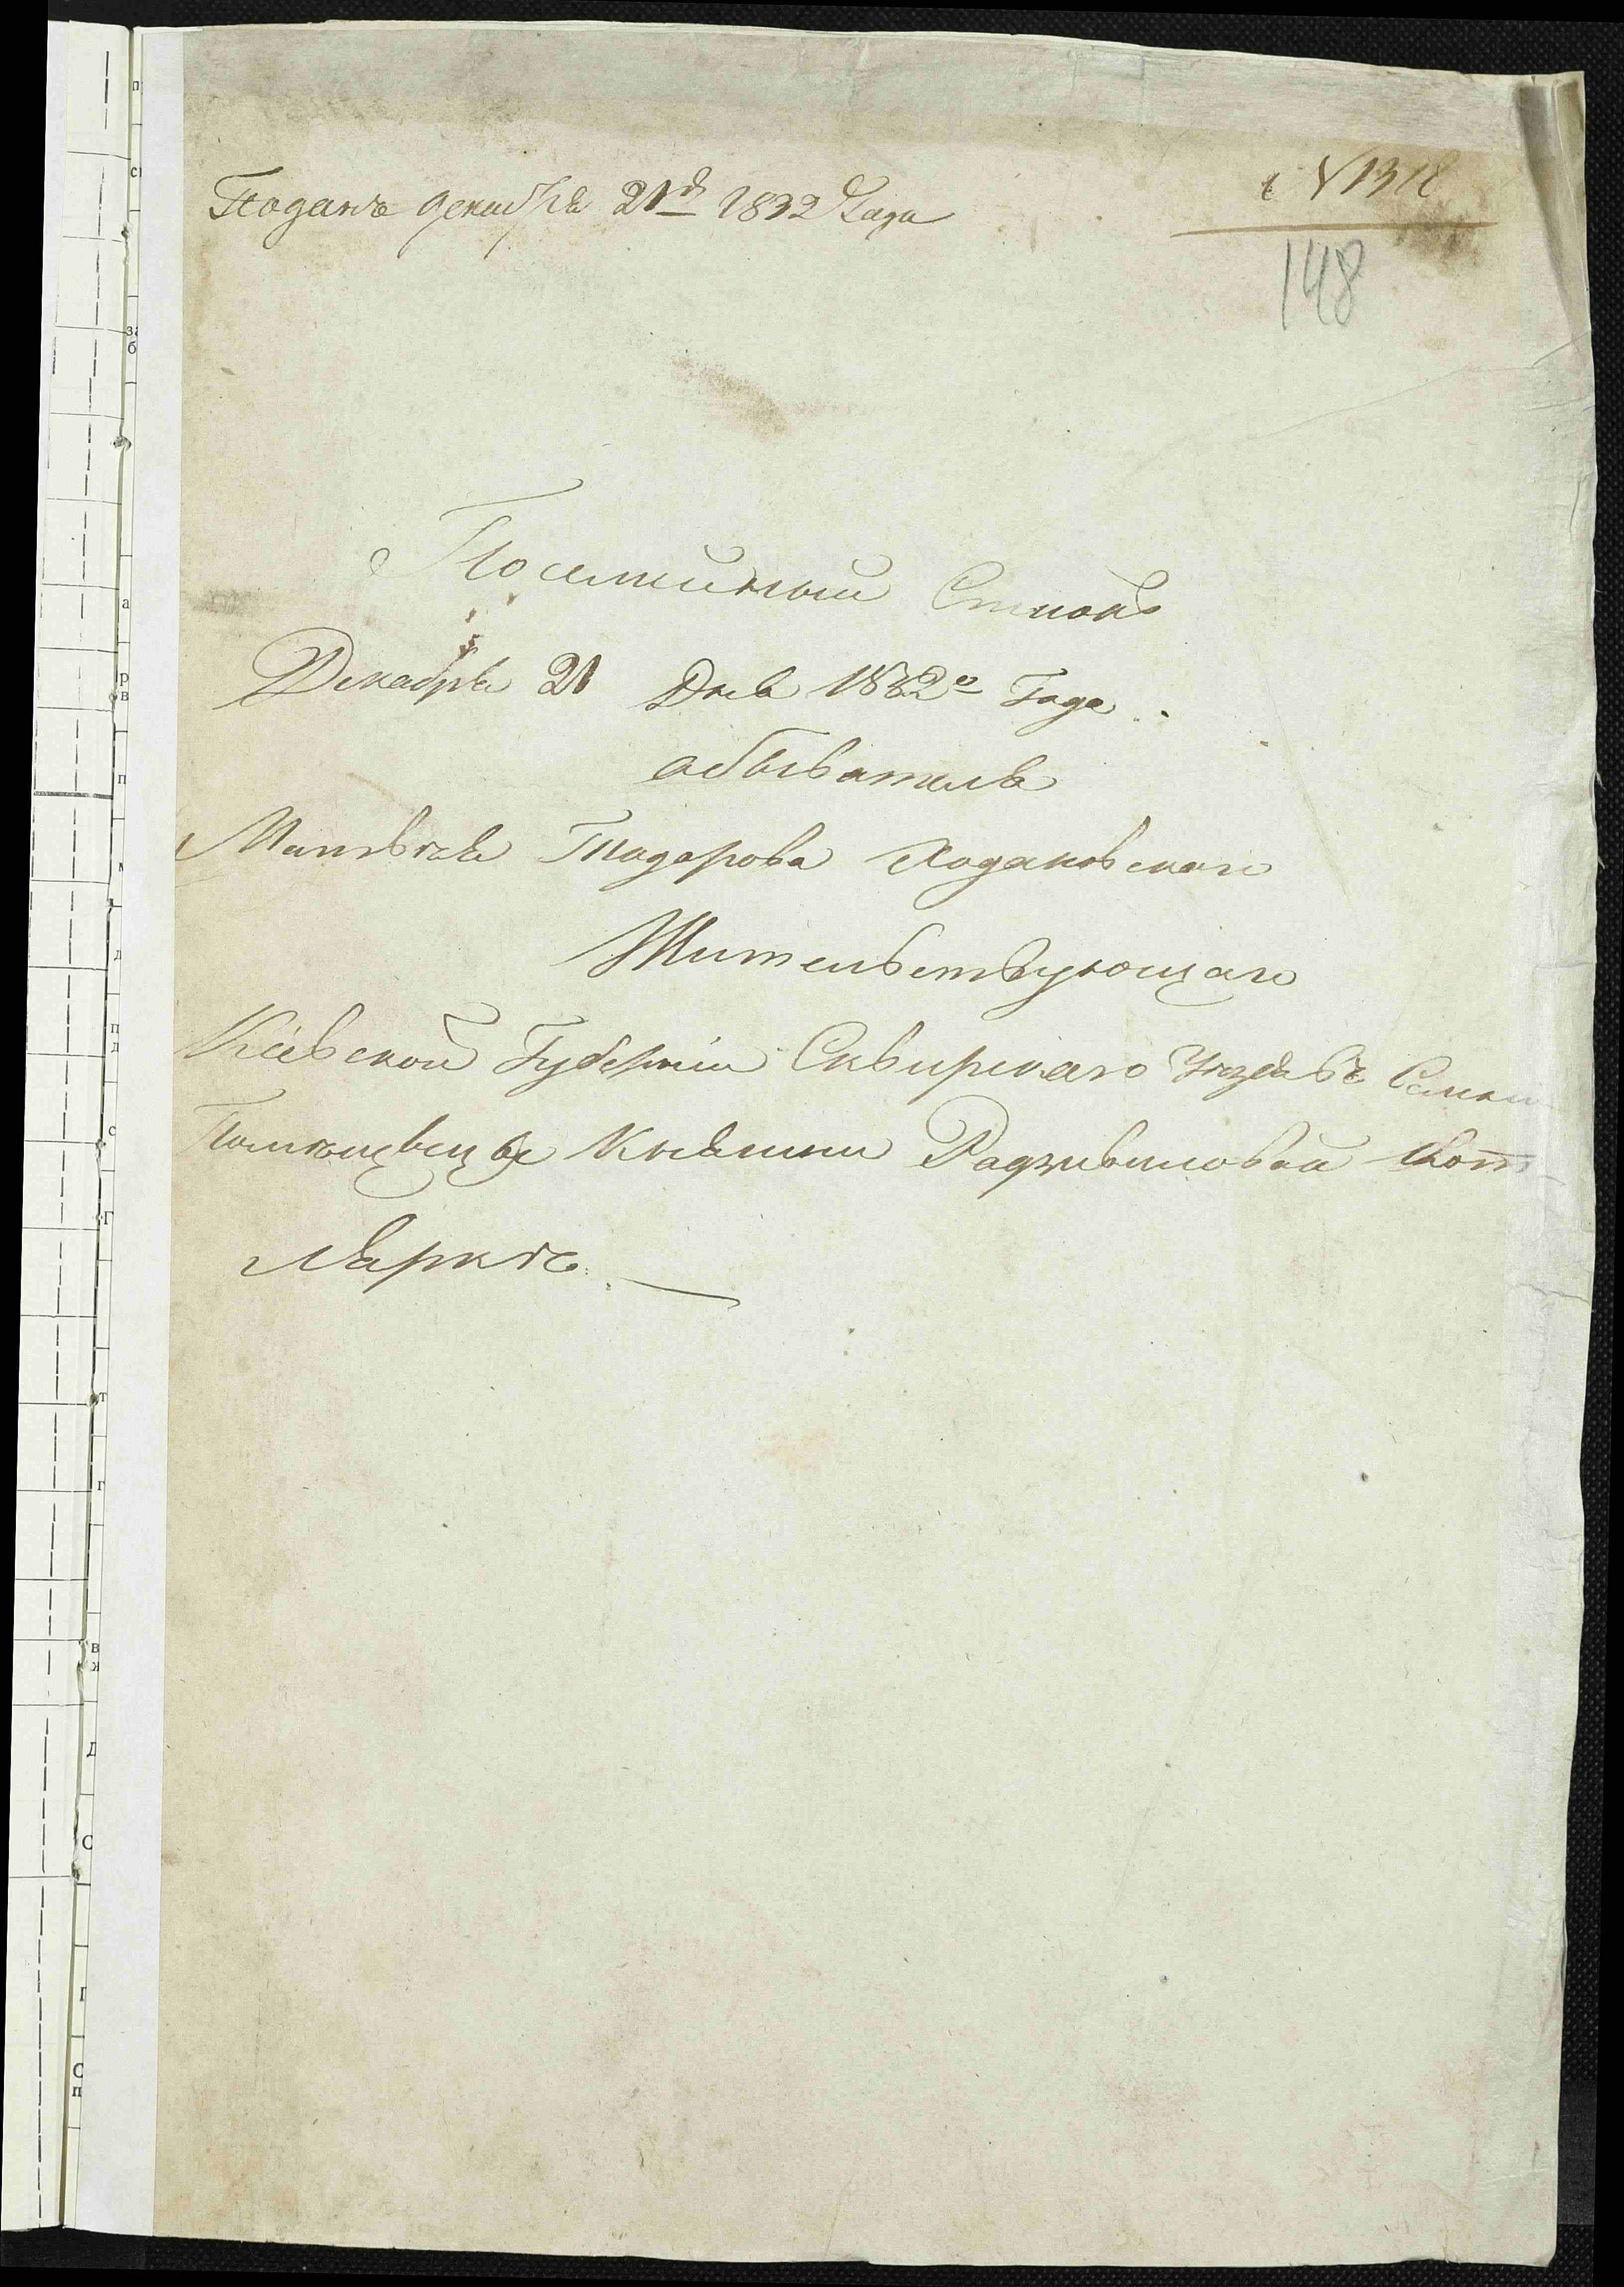 Поданъ декабря 21д 1832 Года
N 1318
148
Посемейный Списокъ
Декабря 21 Дня 1832го Года
обывателя
Матвѣя Тодорова Ходаковского
Жительствующаго
Кіевской Губерніи Сквирскаго Уезда въ Селении
Помѣщицы Княгини Радзивиловой